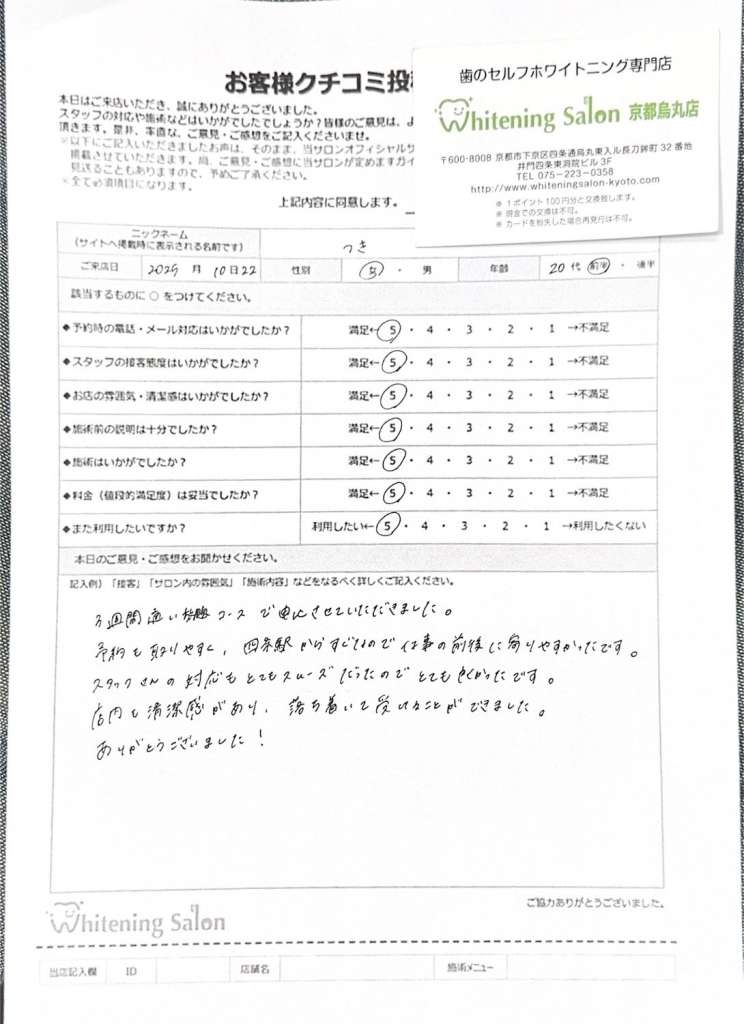 お客様クチコミ投
本日はご来店いただき、誠にありがとうございました。
スタッフの対応や施術などはいかがでしたでしょうか？皆様のご意見は、よ
頂きます。是非、率直な、ご意見・ご感想をご記入くださいませ。
※以下にご記入いただきましたお声は、そのまま、当サロンオフィシャルサ
掲載させていただきます。尚、ご意見・ご感想に当サロンが定めますガイ
見送ることもありますので、予めご了承ください。
※全て必須項目になります。
上記内容に同意します。
歯のセルフホワイトニング専門店
Whitening Salon 京都烏丸店
〒600-8008 京都市下京区四条通烏丸東入ル長刀鉾町 32 番地
井門四条東洞院ビル 3F
TEL 075-223-0358
http://www.whiteningsalon-kyoto.com
※ 1ポイント100円分と交換致します。
※ 現金での交換は不可。
※ カードを紛失した場合再発行は不可。
ニックネーム
（サイトへ掲載時に表示される名前です） つき
ご来店日 2025 月 10日22 性別 女 ・ 男 年齢 20 代 前半 ・ 後半
該当するものに ○ をつけてください。
◆予約時の電話・メール対応はいかがでしたか？ 満足← 5 ・ 4 ・ 3 ・ 2 ・ 1 →不満足
◆スタッフの接客態度はいかがでしたか？ 満足← 5 ・ 4 ・ 3 ・ 2 ・ 1 →不満足
◆お店の雰囲気・清潔感はいかがでしたか？ 満足← 5 ・ 4 ・ 3 ・ 2 ・ 1 →不満足
◆施術前の説明は十分でしたか？ 満足← 5 ・ 4 ・ 3 ・ 2 ・ 1 →不満足
◆施術はいかがでしたか？ 満足← 5 ・ 4 ・ 3 ・ 2 ・ 1 →不満足
◆料金（値段的満足度）は妥当でしたか？ 満足← 5 ・ 4 ・ 3 ・ 2 ・ 1 →不満足
◆また利用したいですか？ 利用したい← 5 ・ 4 ・ 3 ・ 2 ・ 1 →利用したくない
本日のご意見・ご感想をお聞かせください。
記入例）「接客」「サロン内の雰囲気」「施術内容」などをなるべく詳しくご記入ください。
3週間通い放題コースで申込させていただきました。
予約も取りやすく、四条駅からすぐなので仕事の前後に寄りやすかったです。
スタッフさんの対応もとてもスムーズだったのでとても良かったです。
店内も清潔感があり、落ち着いて受けることができました。
ありがとうございました！
ご協力ありがとうございました。
Whitening Salon
当店記入欄 ID 店舗名 施術メニュー